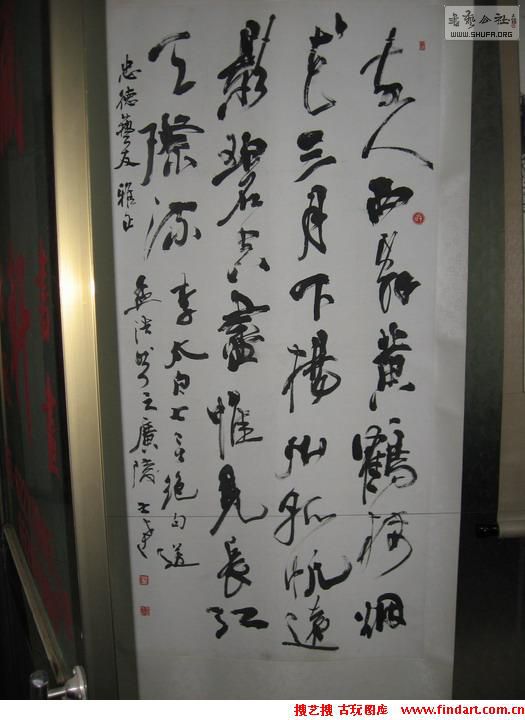 故人西辞黄鹤楼烟
花三月下扬州孤帆远
影碧空尽惟见长江
天际流
李太白七言绝句送
孟浩然之广陵
忠德艺友雅正
书艺公社
WWW.SHUFA.ORG
搜艺搜 古玩图库 www.findart.com.cn